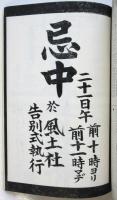 忌中
二十一日午
前十時ヨリ
前十一時マデ
於風土社
告別式執行